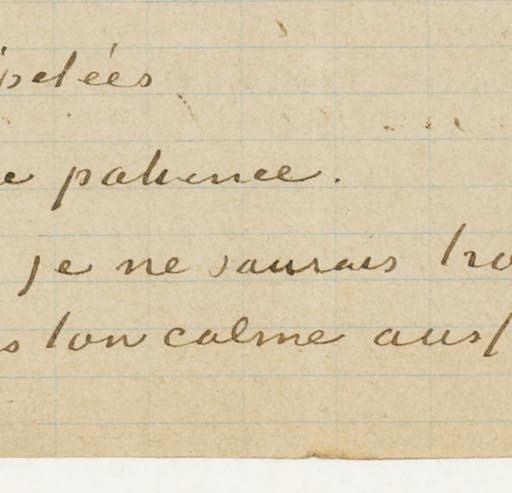 pelées
e patience.
je ne saurais tro
s ton calme aus